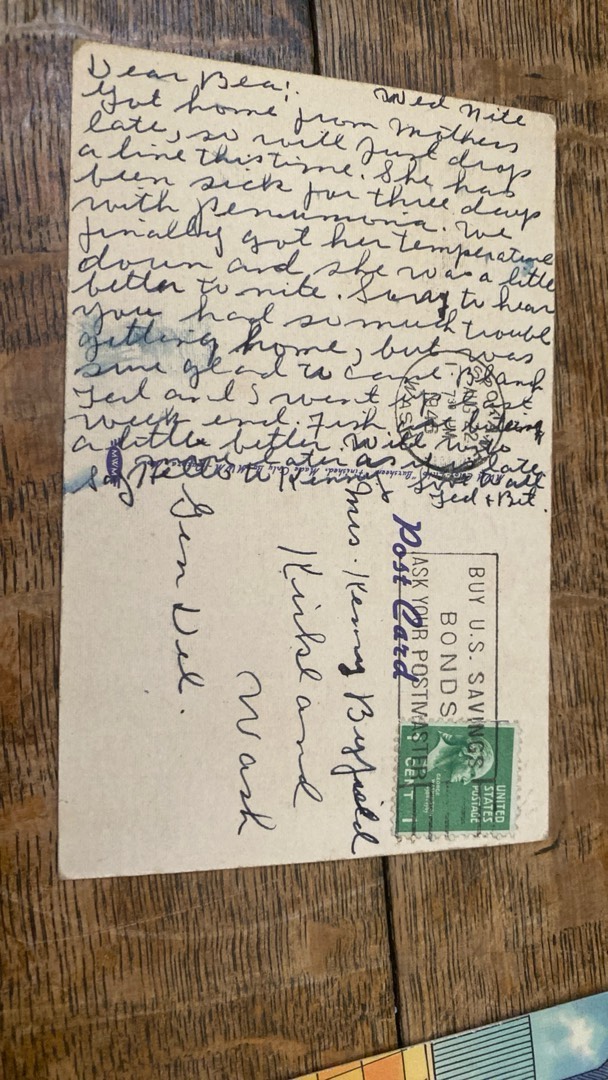 Dear Bea: Wed Nite
Got home from Mothers
late, so will just drop
a line this time. She has
been sick for three days
with penumonia. We
finally got her temperature
down and she was a little
better to nite. Sorry to hear
you had so much trouble
getting home, but was
sure glad
Ted and I went
week end. Fish
a little better. Will
later as
Say Hello to Kenny
Ted + Bet.
MWM
Post Card
Mrs. Kenny Byfield
Kirkland
Wash
Gen Del.
SPOKANE
AUG 22
7 30 PM
1946
WASH.
BUY U.S. SAVINGS
BONDS
ASK YOUR POSTMASTER
UNITED
STATES
POSTAGE
GEORGE
1 CENT 1